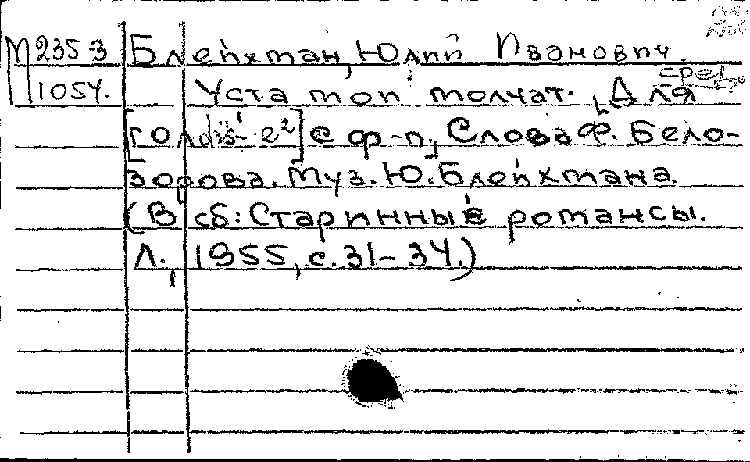 М 235-3 Блейхман, Юлий Иванович.
1054. Уста мои молчат. [Для сред.
голоса] с ф-п. Слова Ф. Бело-
зорова. Муз. Ю. Блейхмана.
(В сб: Старинные романсы.
Л., 1955, с. 31-34.)